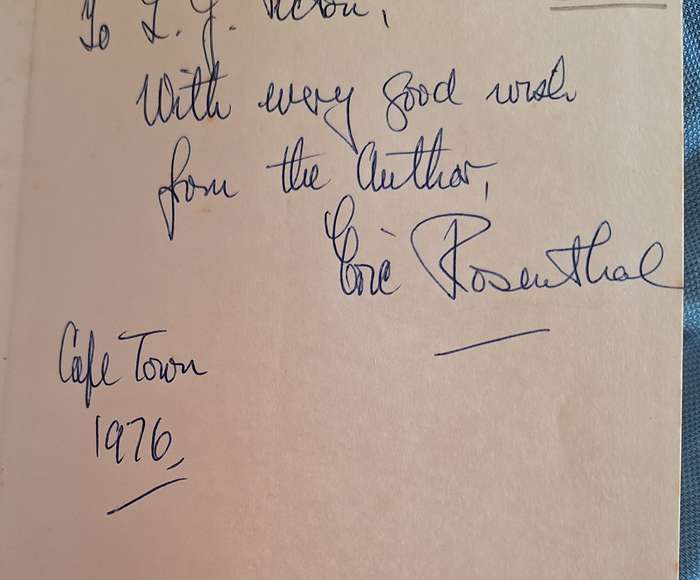 To L. G.
With every good wish
from the Author,
Eric Rosenthal
Cape Town
1976,